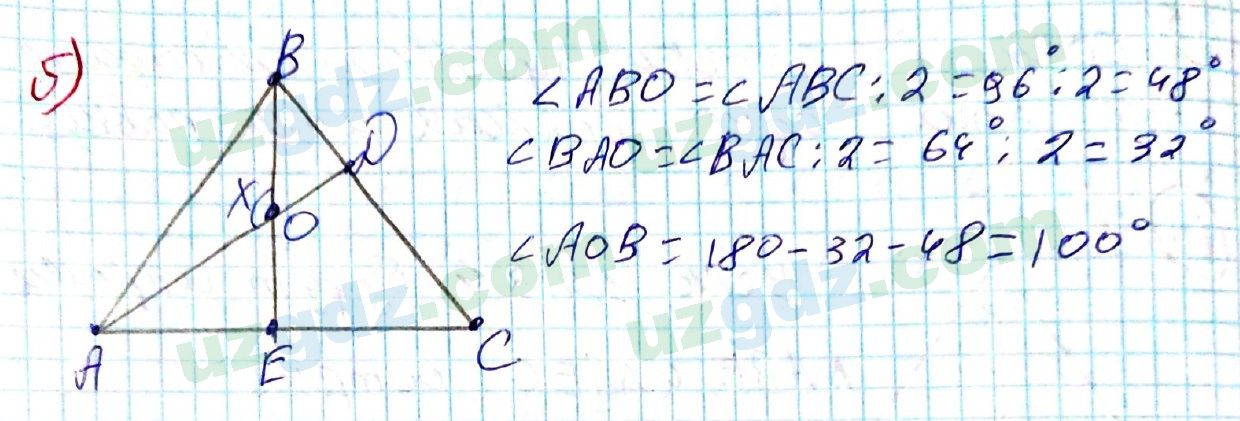 б)
B
∠ABO = ∠ABC : 2 = 96° : 2 = 48°
D
∠BAO = ∠BAC : 2 = 64° : 2 = 32°
x
O
∠AOB = 180 - 32 - 48 = 100°
A
E
C
uzgdz.com
uzgdz.com
uzgdz.com
uzgdz.com